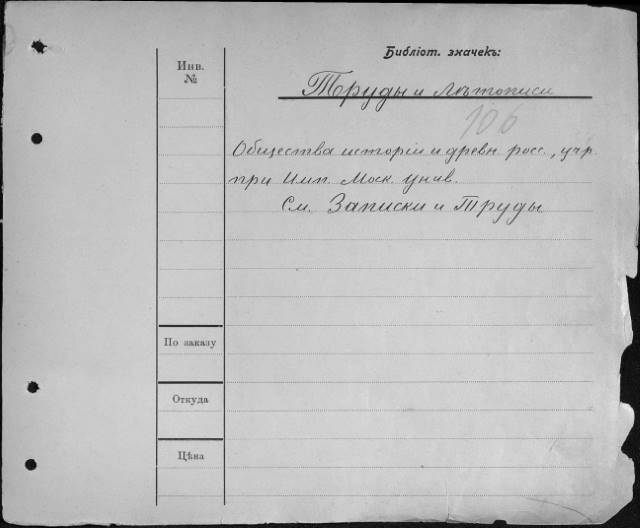 Библіот. значекъ:
Инв.
№
Труды и Лѣтописи
106
Общества исторіи и древн. росс., учр.
при Имп. Моск. унив.
См. Записки и Труды
По заказу
Откуда
Цѣна